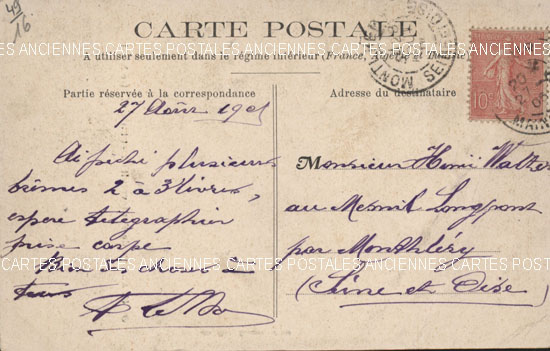 49
16
CARTE POSTALE
CARTES POSTALES ANCIENNES CARTES POSTALES ANCIENNES CARTES POSTALES
A utiliser seulement dans le régime intérieur (France, Algérie et Tunisie)
Partie réservée à la correspondance
27 Août 190
Ai pêché plusieurs
brêmes 2 à 3 livres,
espère télégraphier
prise carpe
tous
Adresse du destinataire
Monsieur Henri Walter
au Mesnil Longpont
par Montlhéry
(Seine et Oise)
10
CARTES POSTALES ANCIENNES CARTES POSTALES ANCIENNES CARTES POSTALES